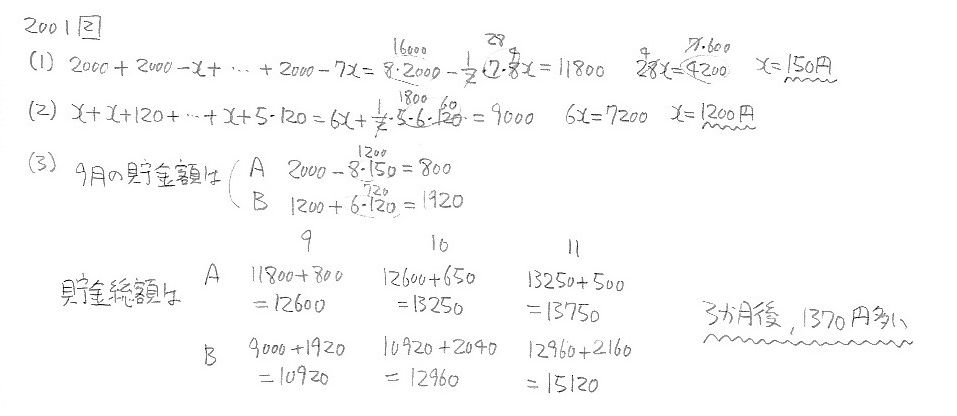 2001 2
16000 28 4 4 7・600
(1) 2000+2000-x+…+2000-7x=8・2000-1/2・7・8x=11800 28x=4200 x=150円
1800 60
(2) x+x+120+…+x+5・120=6x+1/2・5・6・120=9000 6x=7200 x=1200円
1200
(3) 9月の貯金額は A 2000-8・150=800
720
B 1200+6・120=1920
9 10 11
貯金総額は A 11800+800 12600+650 13250+500
=12600 =13250 =13750
3か月後,1370円多い
B 9000+1920 10920+2040 12960+2160
=10920 =12960 =15120